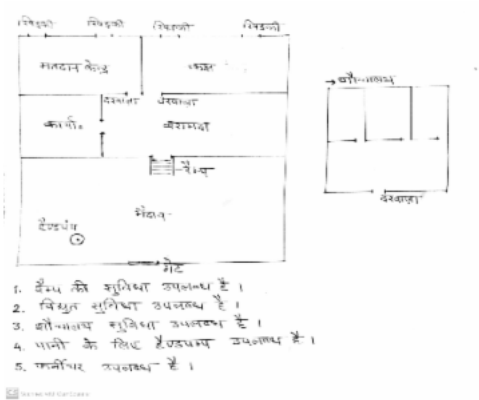 खिड़की खिड़की खिड़की खिड़की
मतदान केन्द्र कक्ष
दरवाजा दरवाजा
कार्या० बरामदा
रैम्प
मैदान
हैण्डपंप
गेट
शौचालय
दरवाजा
1. रैम्प की सुविधा उपलब्ध है ।
2. विद्युत सुविधा उपलब्ध है ।
3. शौचालय सुविधा उपलब्ध है ।
4. पानी के लिए हैण्डपम्प उपलब्ध है ।
5. फर्नीचर उपलब्ध है ।
Scanned with CamScanner